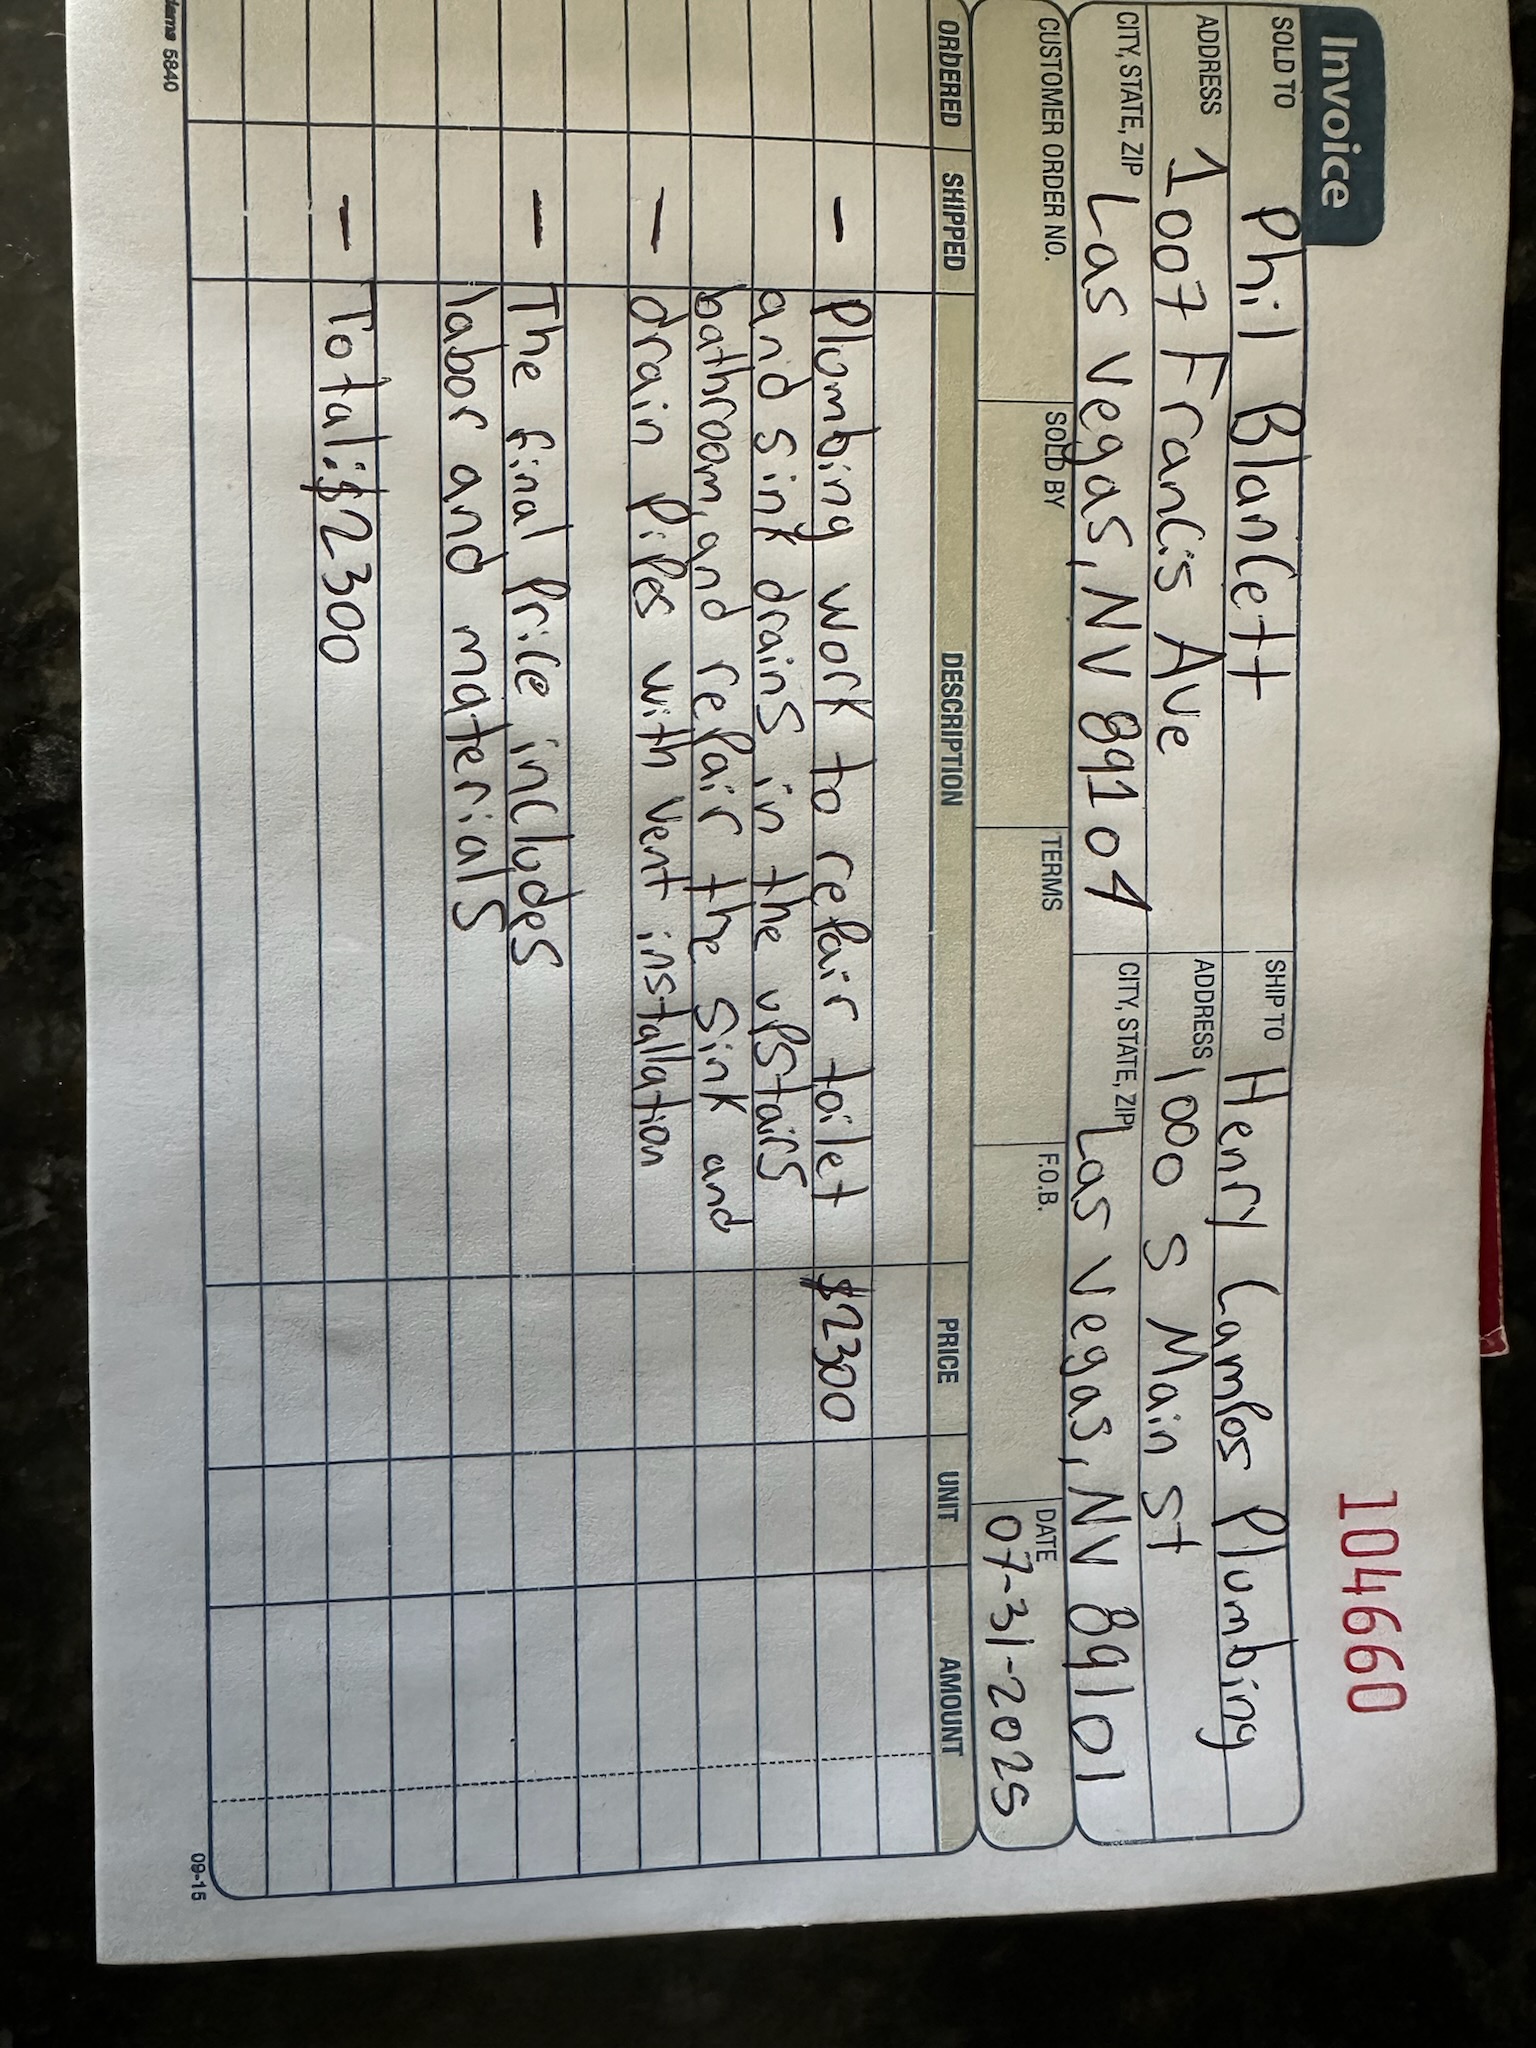 Invoice
104660
SOLD TO Phil Blancett
SHIP TO Henry Campos Plumbing
ADDRESS 1007 Francis Ave
ADDRESS 1000 S Main St
CITY, STATE, ZIP Las Vegas, NV 89104
CITY, STATE, ZIP Las Vegas, NV 89101
CUSTOMER ORDER NO. SOLD BY TERMS F.O.B. DATE
07-31-2025
ORDERED SHIPPED DESCRIPTION PRICE UNIT AMOUNT
- Plumbing work to repair toilet $2300
and sink drains in the upstairs
bathroom, and repair the sink and
- drain pipes with vent installation
- The final price includes
labor and materials
- Total: $2300
5840
09-15